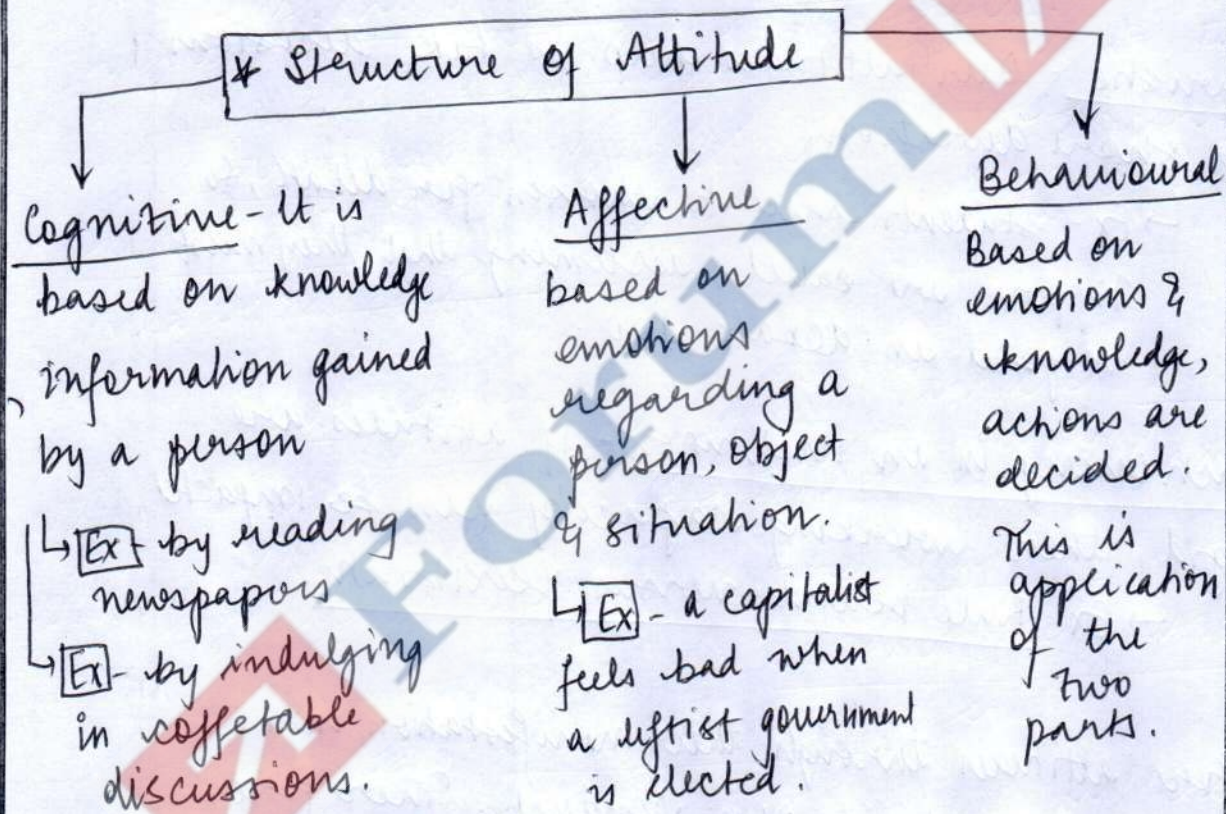 * Structure of Attitude
Cognitive - It is
based on knowledge
information gained
by a person
Ex - by reading
newspapers
Ex - by indulging
in coffetable
discussions.
Affective
based on
emotions
regarding a
person, object
& situation.
Ex - a capitalist
feels bad when
a leftist government
is elected.
Behavioural
Based on
emotions &
knowledge,
actions are
decided.
This is
application
of the
two
parts.
Forum